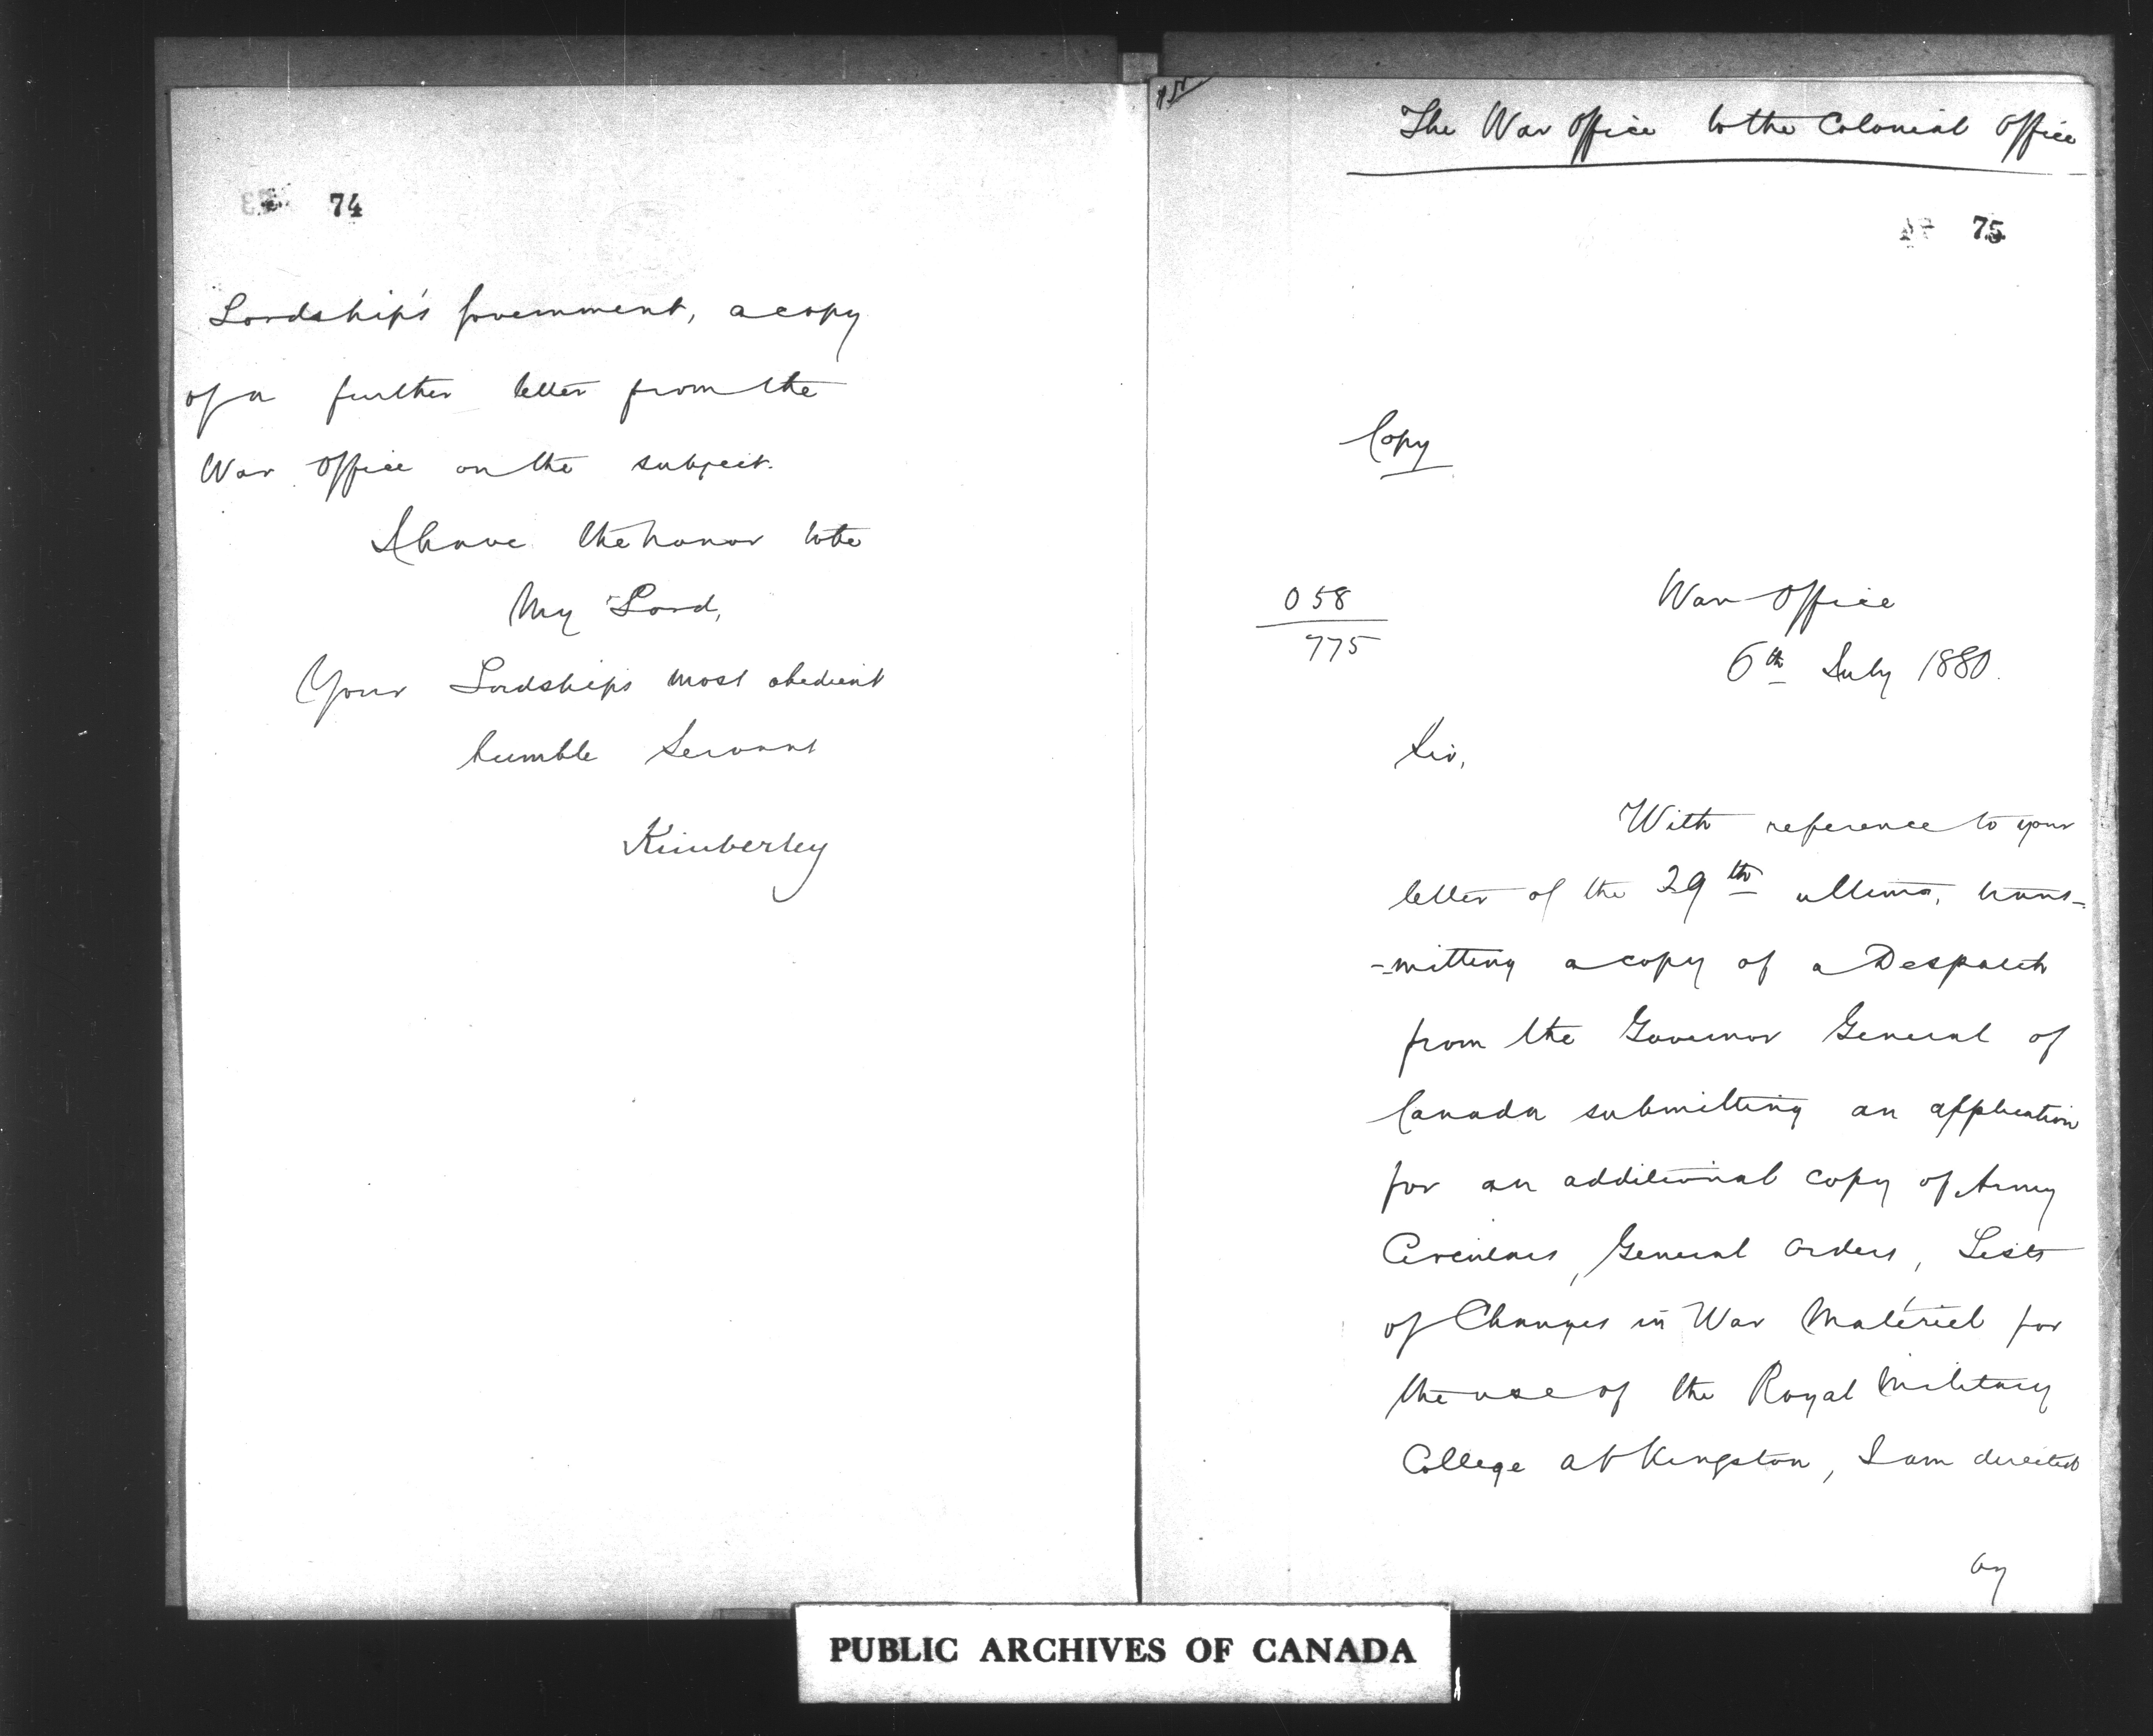 74
Lordship's Government, a copy
of a further letter from the
War Office on the subject.
I have the honor to be
My Lord,
Your Lordships most obedient
humble Servant
Kimberley
The War Office to the Colonial Office
75
Copy
058
775
War Office
6th July 1880.
Sir,
With reference to your
letter of the 29th ultimo, trans-
-mitting a copy of a Despatch
from the Governor General of
Canada submitting an application
for an additional copy of Army
Circulars, General Orders, Lists
of Changes in War Matériel for
the use of the Royal Military
College at Kingston, I am directed
by
PUBLIC ARCHIVES OF CANADA